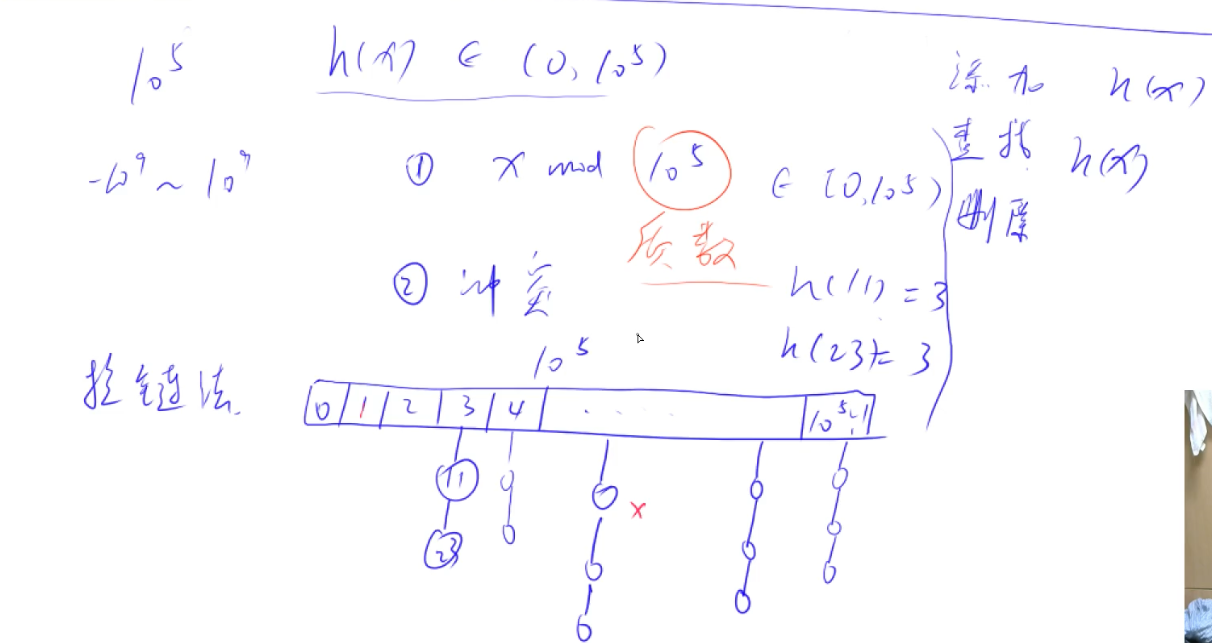 10^5 h(x) ∈ (0, 10^5)
添加 h(x)
-10^9 ~ 10^9 ① x mod 10^5 ∈ [0, 10^5)
查找 h(x)
质数
删除
② 冲突 h(11) = 3
h(23) = 3
拉链法
10^5
0 1 2 3 4 ..... 10^5-1
11
23
x